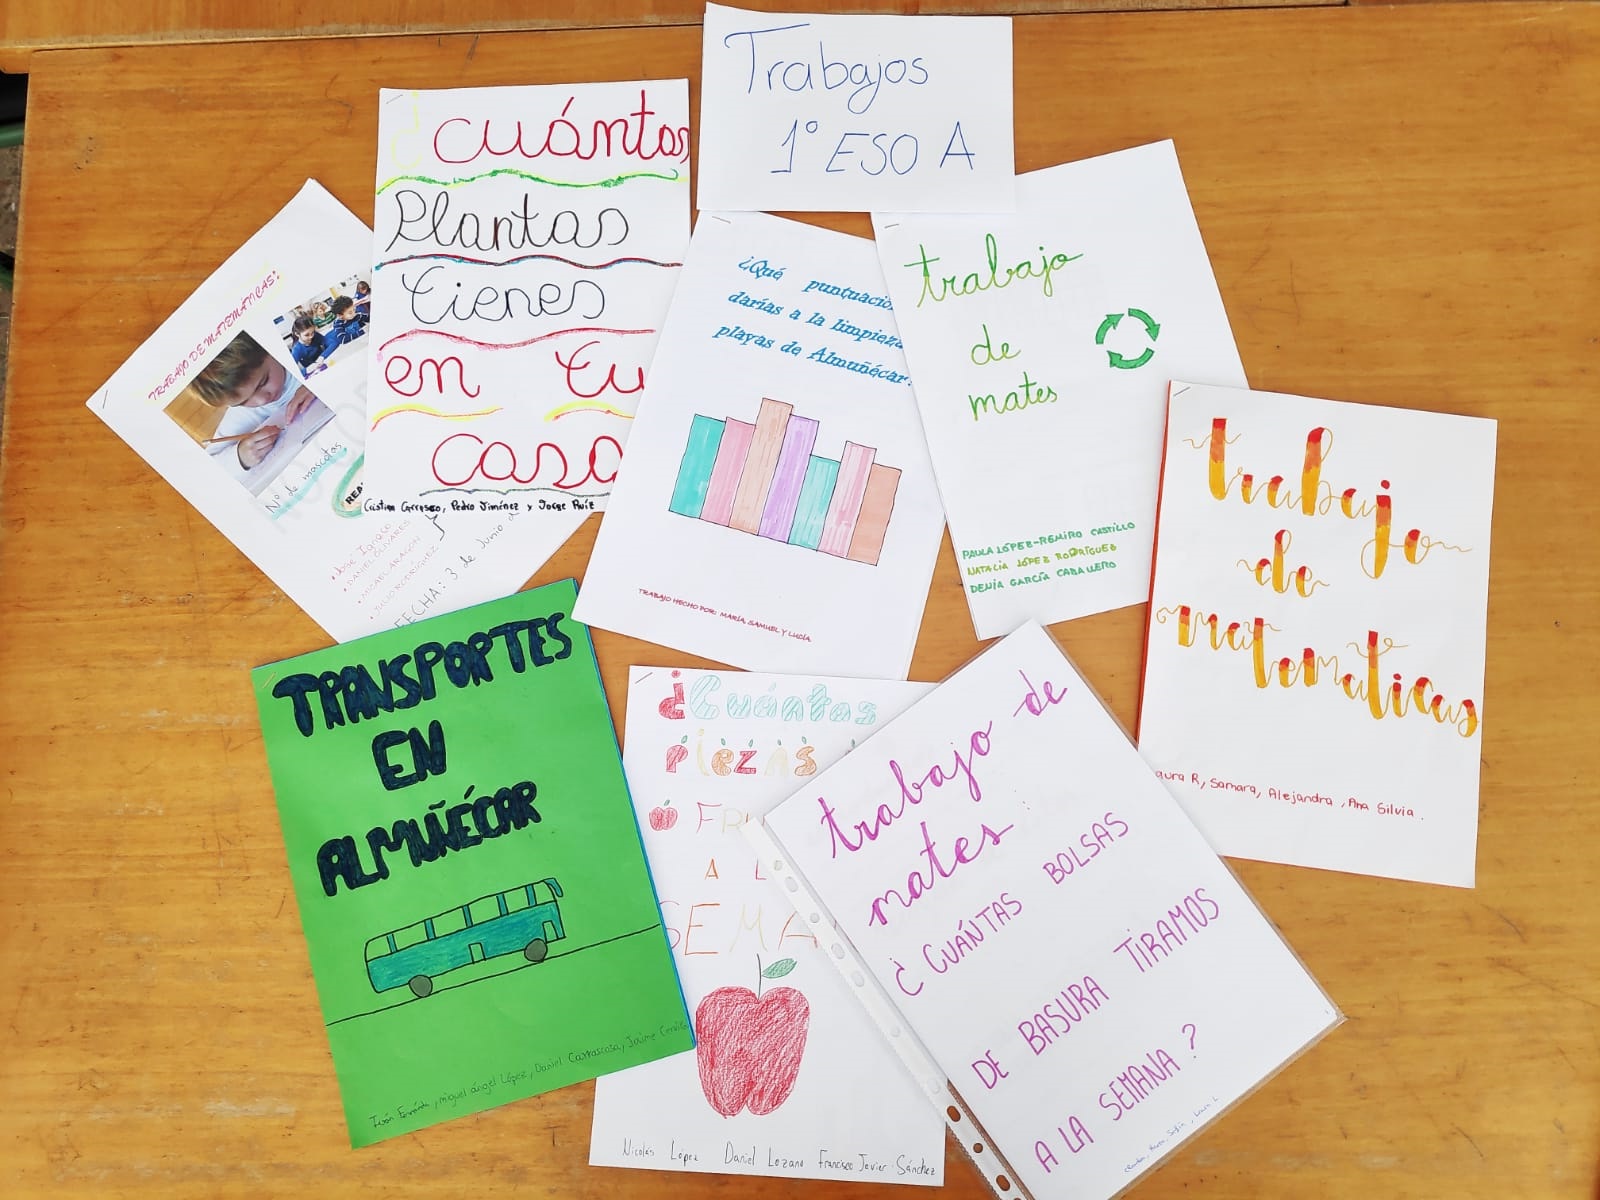 Trabajos
1º ESO A
¿cuántas
Plantas
tienes
en tu
casa
Cristina Carrasco, Pedro Jiménez y Jorge Ruíz
TRABAJO DE MATEMÁTICAS:
Nº de mascotas
REA
•José Ignacio
•DANIEL OLIVARES
•MICAEL ARAGÓN
•JULIO RODRÍGUEZ
FECHA: 3 de Junio d
¿Qué puntuación
darías a la limpieza
playas de Almuñécar?
TRABAJO HECHO POR: MARÍA, SAMUEL Y LUCÍA
trabajo
de
mates
PAULA LÓPEZ-REMIRO CASTILLO
NATALIA LÓPEZ RODRÍGUEZ
DENIA GARCÍA CABALLERO
trabajo
de
matematicas
aura R, Samara, Alejandra, Ana Silvia.
TRANSPORTES
EN
ALMUÑÉCAR
Iván Fernández, Miguel ángel López, Daniel Carrascosa, Jaime
¿Cuántas
piezas
FRU
A L
SEMA
Nicolás López Daniel Lozano Francisco Javier Sánchez
trabajo de
mates:
¿CUÁNTAS BOLSAS
DE BASURA TIRAMOS
A LA SEMANA?